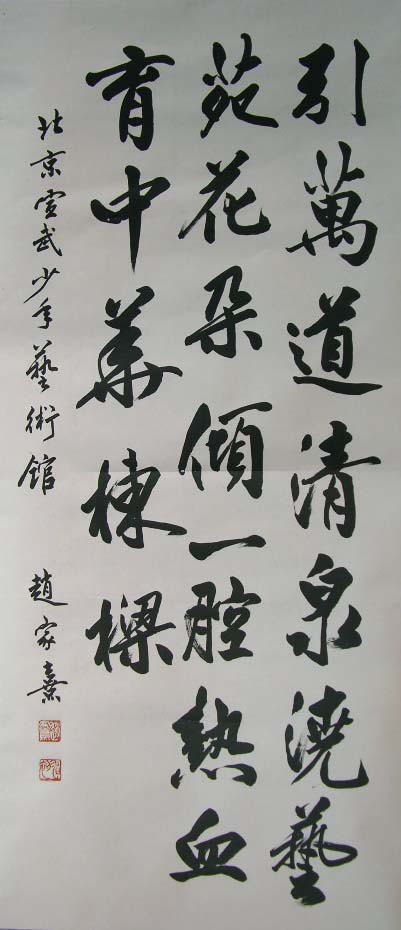 引萬道清泉澆藝
苑花朵傾一腔熱血
育中華棟樑
北京宣武少年藝術館 趙家熹